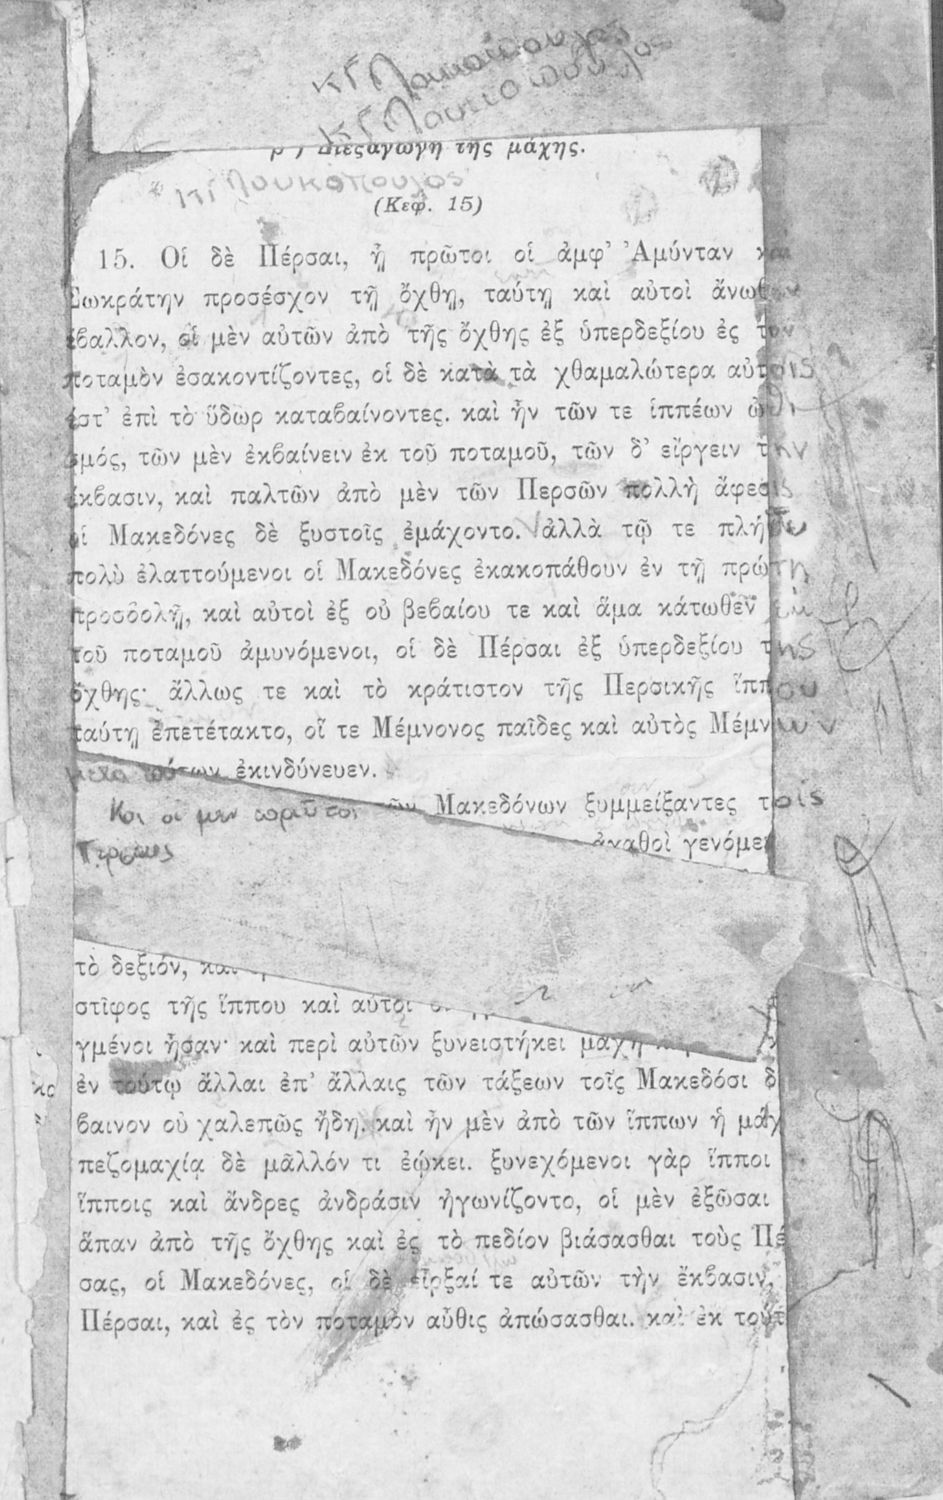 Κ Γ Λουκοπουλος
Κ Γ Λουκοπουλος
Διεξαγωγὴ τῆς μάχης.
Κ Γ Λουκοπουλος
(Κεφ. 15)
15. Οἱ δὲ Πέρσαι, ᾗ πρῶτοι οἱ ἀμφ’ Ἀμύνταν και
Σωκράτην προσέσχον τῇ ὄχθῃ, ταύτῃ καὶ αὐτοὶ ἄνωθεν
ἔβαλλον, οἱ μὲν αὐτῶν ἀπὸ τῆς ὄχθης ἐξ ὑπερδεξίου ἐς τον
ποταμὸν ἐσακοντίζοντες, οἱ δὲ κατὰ τὰ χθαμαλώτερα αὐτοις
ἔστ’ ἐπὶ τὸ ὕδωρ καταβαίνοντες. καὶ ἦν τῶν τε ἱππέων ὠθι
σμός, τῶν μὲν ἐκβαίνειν ἐκ τοῦ ποταμοῦ, τῶν δ’ εἴργειν την
ἔκβασιν, καὶ παλτῶν ἀπὸ μὲν τῶν Περσῶν πολλὴ ἄφεσις
οἱ Μακεδόνες δὲ ξυστοῖς ἐμάχοντο. ἀλλὰ τῷ τε πλήθει
πολὺ ἐλαττούμενοι οἱ Μακεδόνες ἐκακοπάθουν ἐν τῇ πρώτη
προσβολῇ, καὶ αὐτοὶ ἐξ οὐ βεβαίου τε καὶ ἅμα κάτωθεν ἐκ
τοῦ ποταμοῦ ἀμυνόμενοι, οἱ δὲ Πέρσαι ἐξ ὑπερδεξίου της
ὄχθης· ἄλλως τε καὶ τὸ κράτιστον τῆς Περσικῆς ἵππου
ταύτῃ ἐπετέτακτο, οἵ τε Μέμνονος παῖδες καὶ αὐτὸς Μέμνων
μετα τούτων ἐκινδύνευεν.
Και οἱ μεν πρῶτοι τῶν Μακεδόνων ξυμμείξαντες τοις
Πέρσαις ἀγαθοὶ γενόμε
τὸ δεξιόν, καὶ
στῖφος τῆς ἵππου καὶ αὐτοὶ
γμένοι ἦσαν· καὶ περὶ αὐτῶν ξυνειστήκει μάχη
ἐν τούτῳ ἄλλαι ἐπ’ ἄλλαις τῶν τάξεων τοῖς Μακεδόσι δ
βαινον οὐ χαλεπῶς ἤδη. καὶ ἦν μὲν ἀπὸ τῶν ἵππων ἡ μάχ
πεζομαχίᾳ δὲ μᾶλλόν τι ἐῴκει. ξυνεχόμενοι γὰρ ἵπποι
ἵπποις καὶ ἄνδρες ἀνδράσιν ἠγωνίζοντο, οἱ μὲν ἐξῶσαι
ἅπαν ἀπὸ τῆς ὄχθης καὶ ἐς τὸ πεδίον βιάσασθαι τοὺς Πέ
σας, οἱ Μακεδόνες, οἱ δὲ εἶρξαί τε αὐτῶν τὴν ἔκβασιν,
Πέρσαι, καὶ ἐς τὸν ποταμὸν αὖθις ἀπώσασθαι. καὶ ἐκ τούτ